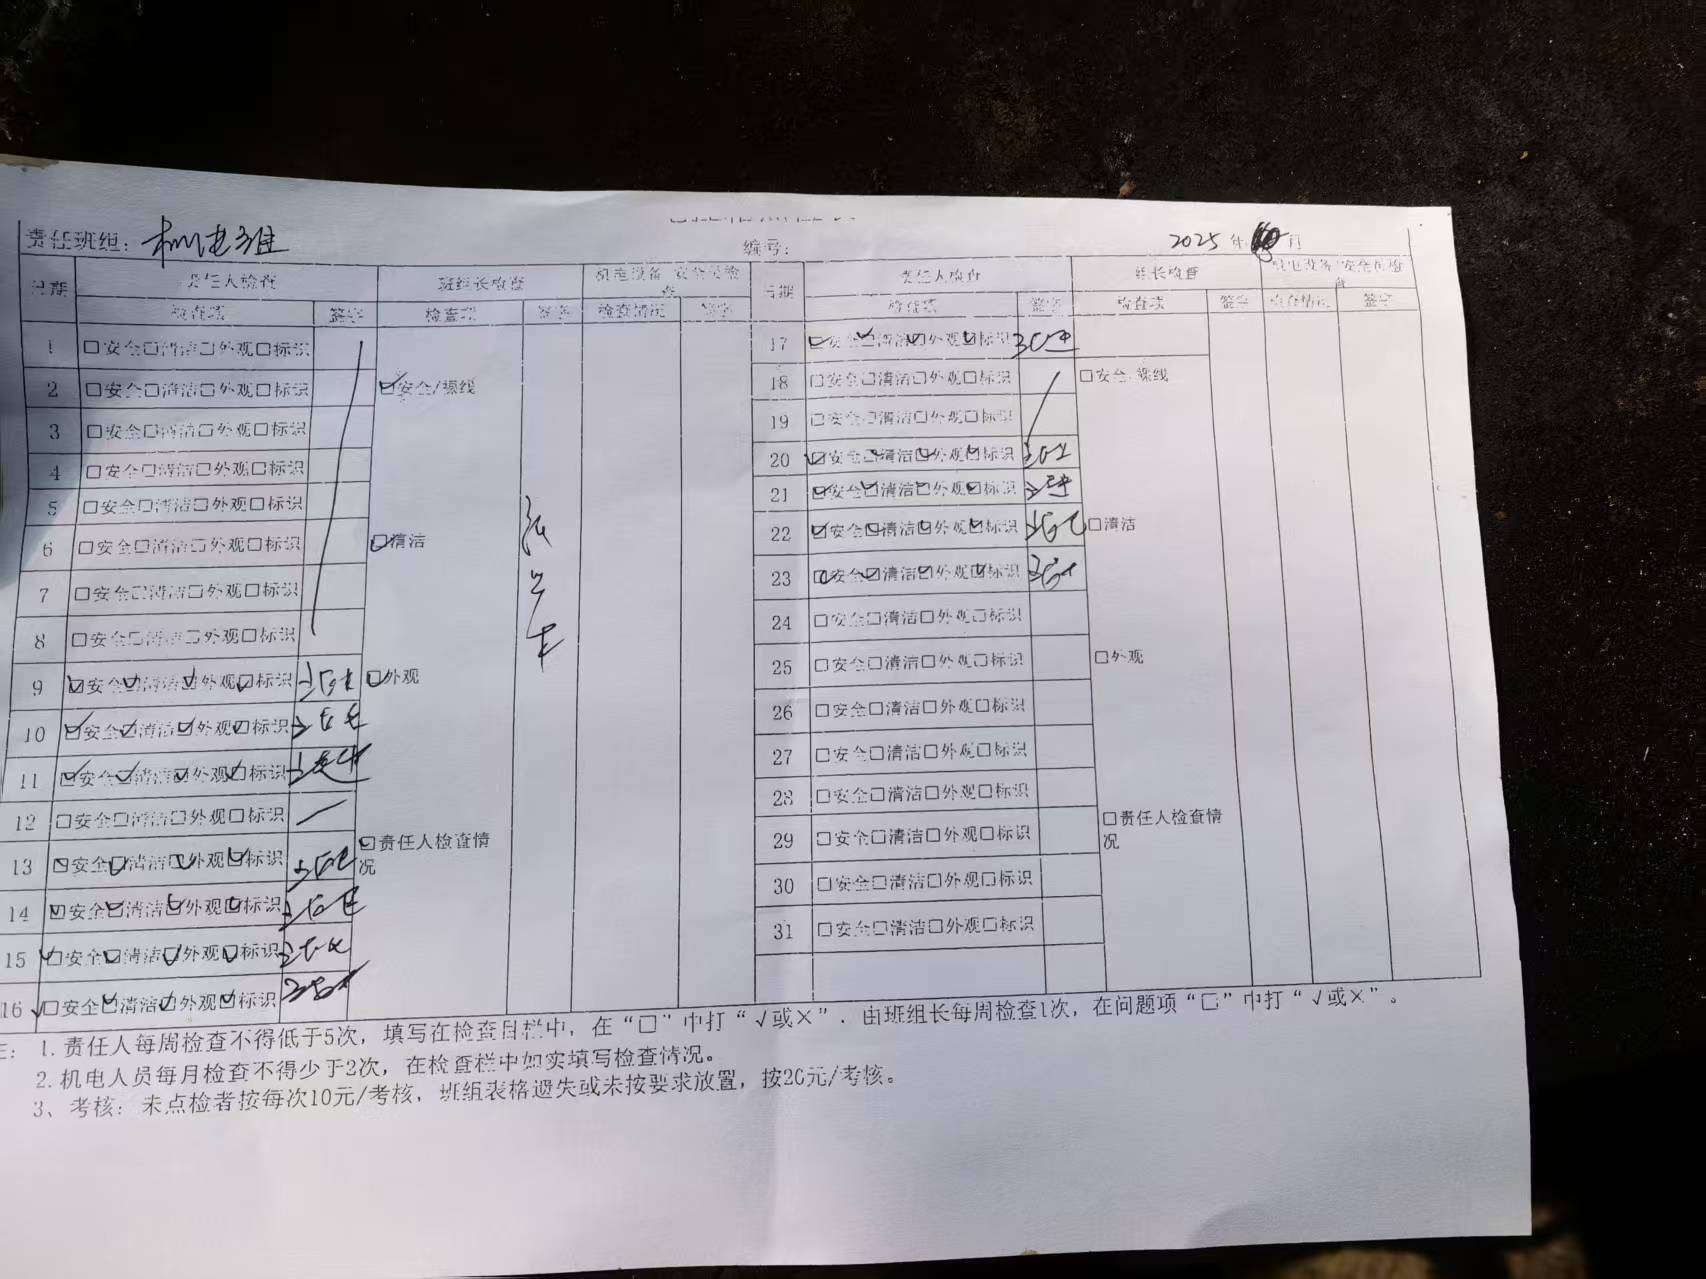 责任班组：机电班 编号： 2025年 月
日期 责任人检查 班组长检查 机电设备/安全员检查 日期 责任人检查 班组长检查 机电设备/安全员检查
检查项 签字 检查项 签字 检查情况 签字 检查项 签字 检查项 签字 检查情况 签字
1 □安全□清洁□外观□标识 17 ☑安全☑清洁☑外观☑标识
2 □安全□清洁□外观□标识 ☑安全/裸线 18 □安全□清洁□外观□标识 □安全/裸线
3 □安全□清洁□外观□标识 19 □安全□清洁□外观□标识
4 □安全□清洁□外观□标识 20 ☑安全☑清洁☑外观☑标识
5 □安全□清洁□外观□标识 21 ☑安全☑清洁☑外观☑标识
6 □安全□清洁□外观□标识 ☑清洁 22 ☑安全☑清洁☑外观☑标识 □清洁
7 □安全□清洁□外观□标识 23 ☑安全☑清洁☑外观☑标识
8 □安全□清洁□外观□标识 24 □安全□清洁□外观□标识
9 ☑安全☑清洁☑外观☑标识 ☑外观 25 □安全□清洁□外观□标识 □外观
10 ☑安全☑清洁☑外观☑标识 26 □安全□清洁□外观□标识
11 ☑安全☑清洁☑外观☑标识 27 □安全□清洁□外观□标识
12 □安全□清洁□外观□标识 28 □安全□清洁□外观□标识
13 ☑安全☑清洁☑外观☑标识 ☑责任人检查情况 29 □安全□清洁□外观□标识 □责任人检查情况
14 ☑安全☑清洁☑外观☑标识 30 □安全□清洁□外观□标识
15 ☑安全☑清洁☑外观☑标识 31 □安全□清洁□外观□标识
16 ☑安全☑清洁☑外观☑标识
注：1.责任人每周检查不得低于5次，填写在检查日栏中，在“□”中打“√或×”．由班组长每周检查1次，在问题项“□”中打“√或×”。
2.机电人员每月检查不得少于2次，在检查栏中如实填写检查情况。
3、考核：未点检者按每次10元/考核，班组表格遗失或未按要求放置，按20元/考核。